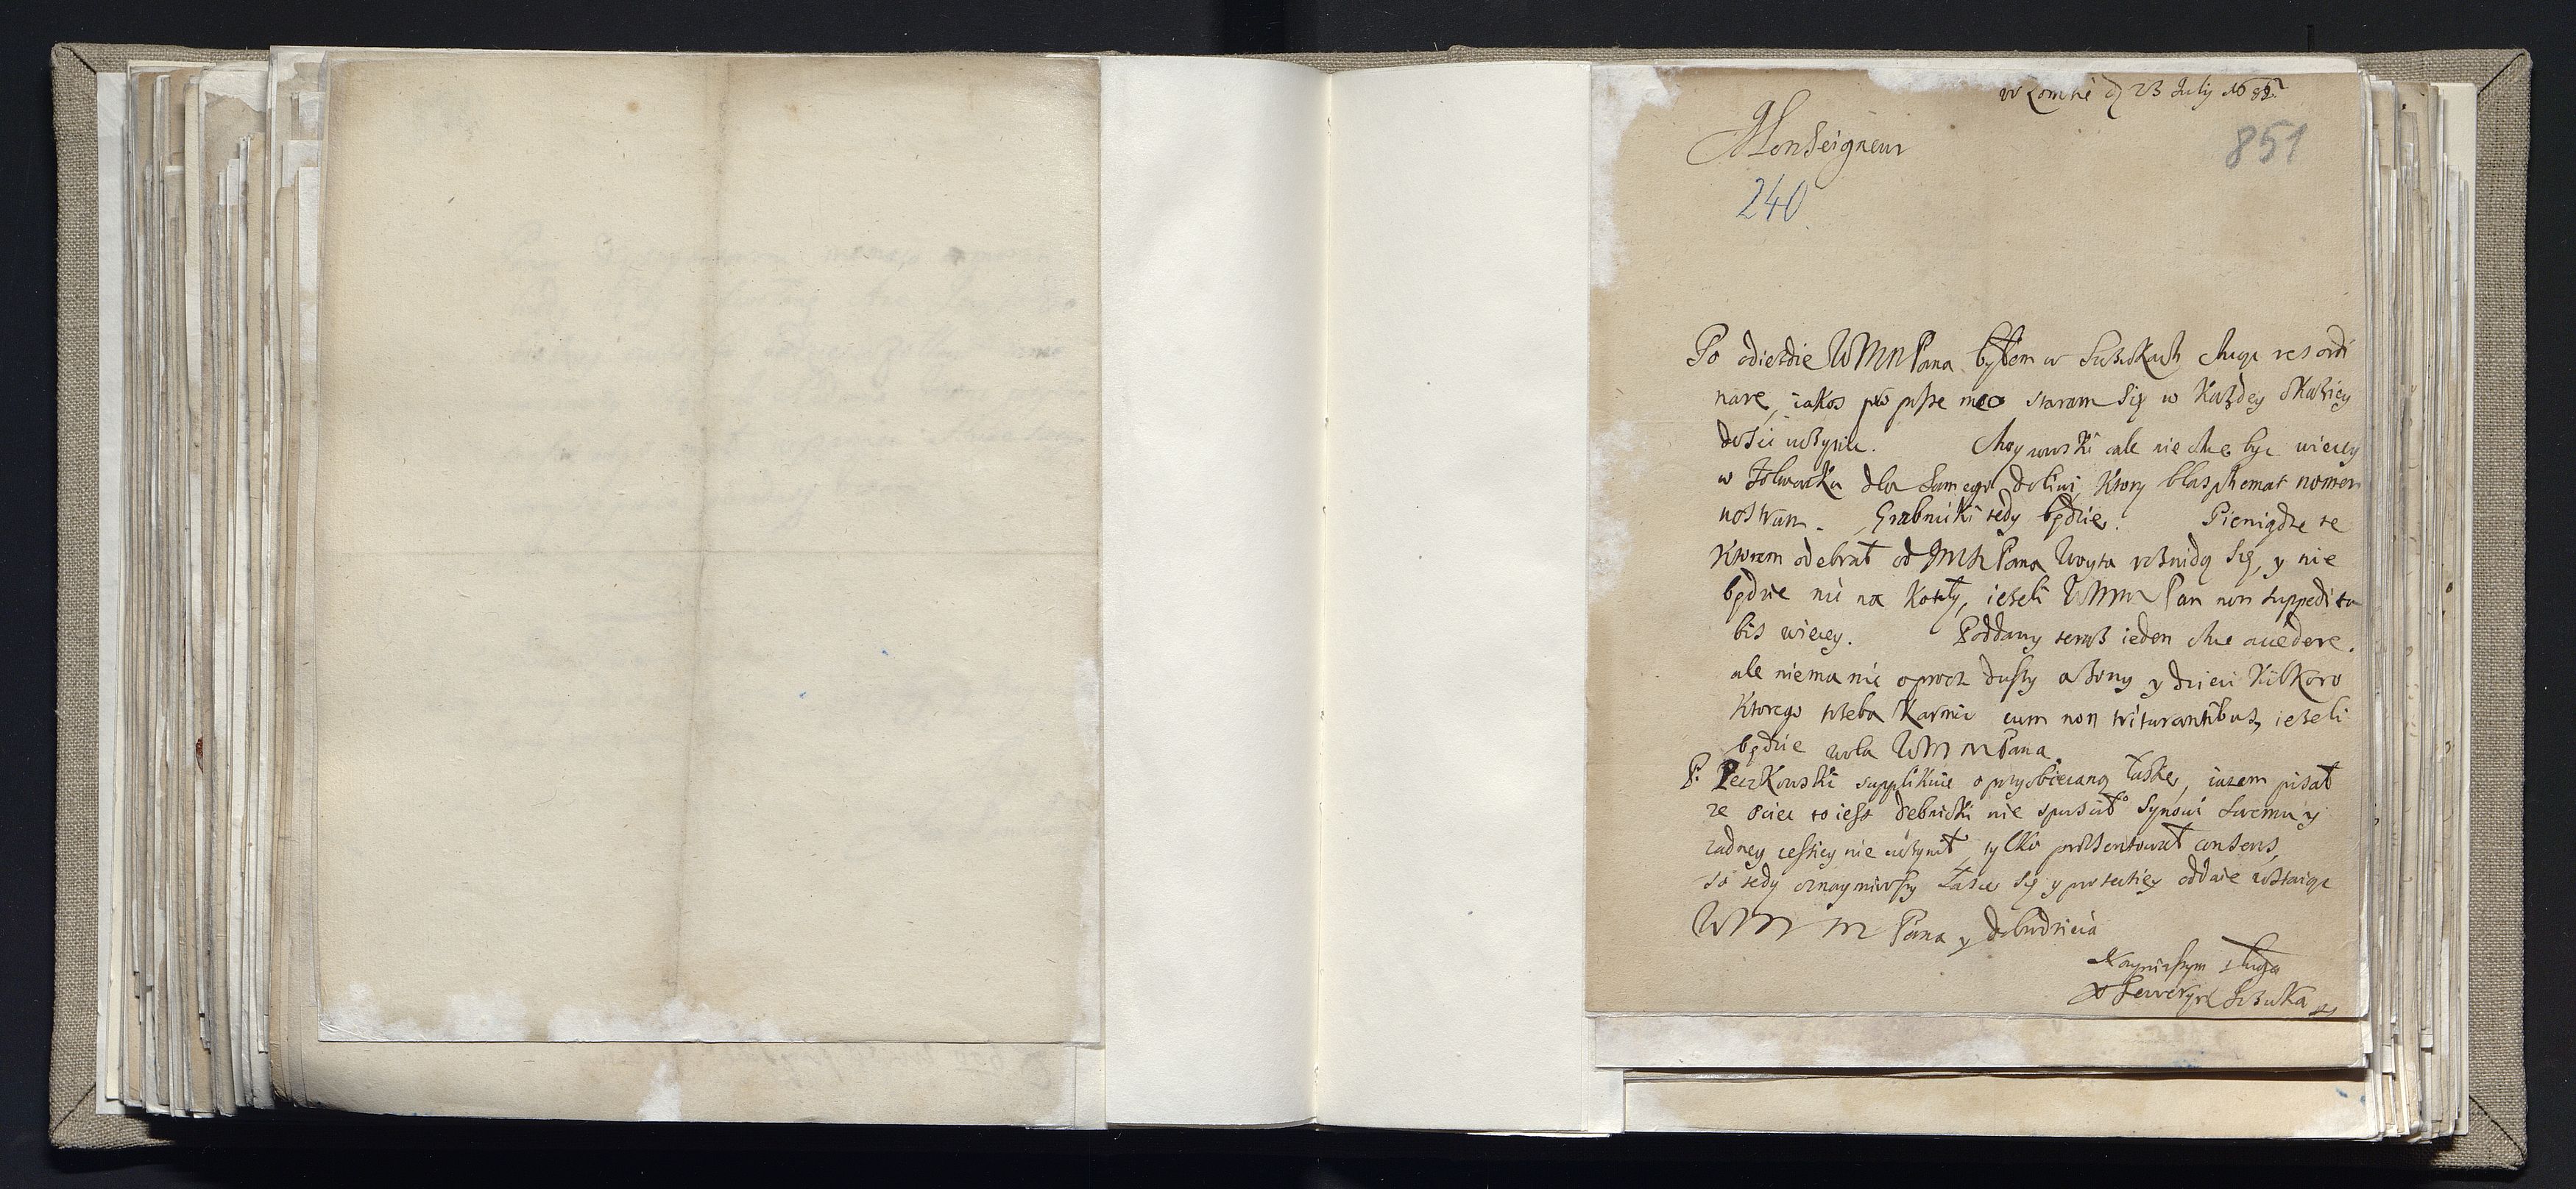 w Łomże d 23 July 1685
Monseigneur
851
240
Po odieździe WMMPana byłem w Szczukach chcąc res ordi
nare, iakoż pro posse meo staram się w każdey okaziey
dosić uczynic. Choynowski ale nie chce byc wiecey
w folwarku dla samego doliwi, ktory blasphemat nomen
nostrum. Grabnicki tedy będzie. Pieniądze te
ktorem odebrał od JMP Pana Woyta rozeidą się, y nie
będzie nic na koszty, ieżeli WMM Pan non suppedita
bis wiecey. Poddany teraz ieden chce accedere.
ale niema nic oprocz duszy a żony y dzieci kilkoro
ktorego trzeba karmic cum non triturantibus, ieżeli
będzie wola WMMPana.
P. Peczkowski supplikuie o przyobiecaną łaskę, iużem pisał
ze ociec to iest Debnicki nie spuscił synowi swemu y
żadney cessiey nie uczynił, tylko prezentował consens,
to tedy oznaymiwszy łasce się y protectiey oddaie zostaiąc
WM M Pana y dobrodzieia
Nayniższym sługą
X Seweryn Szczuka